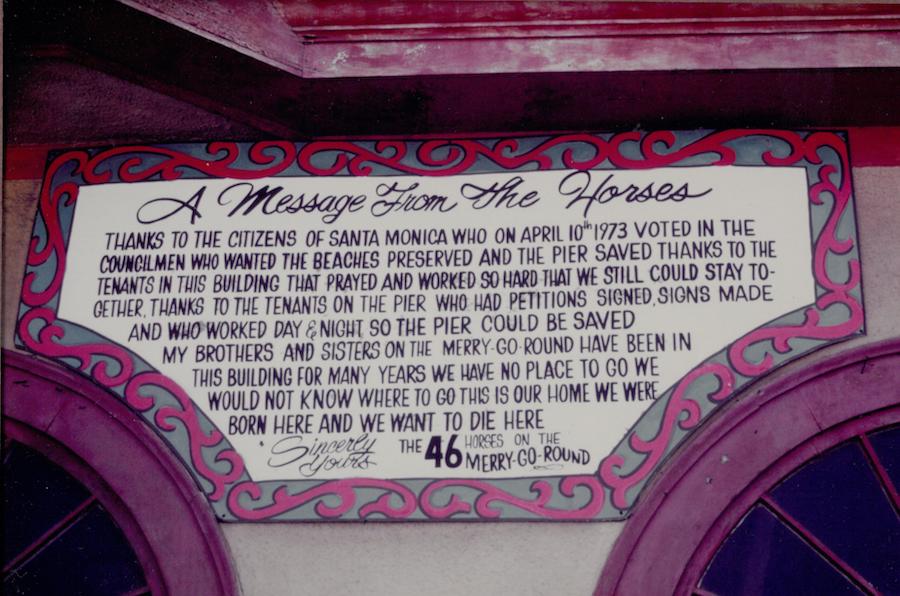 A Message From The Horses
THANKS TO THE CITIZENS OF SANTA MONICA WHO ON APRIL 10th 1973 VOTED IN THE
COUNCILMEN WHO WANTED THE BEACHES PRESERVED AND THE PIER SAVED THANKS TO THE
TENANTS IN THIS BUILDING THAT PRAYED AND WORKED SO HARD THAT WE STILL COULD STAY TO-
GETHER, THANKS TO THE TENANTS ON THE PIER WHO HAD PETITIONS SIGNED, SIGNS MADE
AND WHO WORKED DAY & NIGHT SO THE PIER COULD BE SAVED
MY BROTHERS AND SISTERS ON THE MERRY-GO-ROUND HAVE BEEN IN
THIS BUILDING FOR MANY YEARS WE HAVE NO PLACE TO GO WE
WOULD NOT KNOW WHERE TO GO THIS IS OUR HOME WE WERE
BORN HERE AND WE WANT TO DIE HERE
Sincerly
Yours
THE 46 HORSES ON THE
MERRY-GO-ROUND